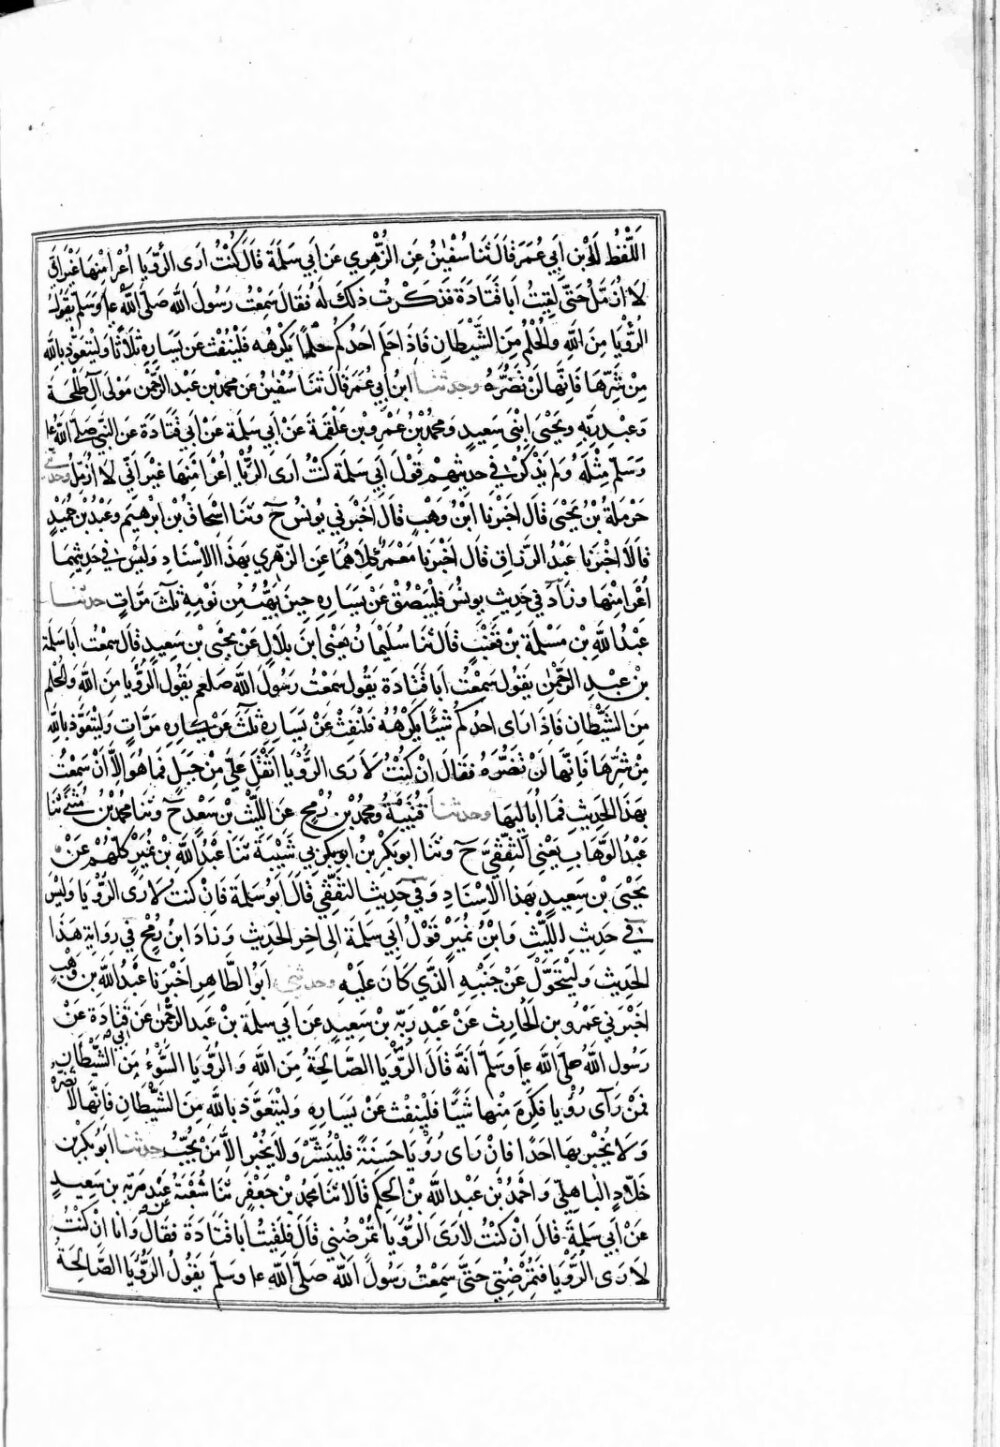 اَللَّفْظُ لِابْنِ اَبِي عُمَرَ قَالَ ثَنَا سُفْيٰنُ عَنِ الزُّهْرِي عَنْ اَبِي سَلَمَةَ قَالَ كُنْتُ اَرَى الرُّؤيَا اُعْرَا مِنْهَا غَيْرَ اَنِّي
لَا اُزَمَّلُ حَتَّى لَقِيْتُ اَبَا قَتَادَةَ فَذَكَرْتُ ذٰلِكَ لَهُ فَقَالَ سَمِعْتُ رَسُولَ اللهِ صَلَّى اللهُ ع‍ا وَسَلَّم يَقُولُ
الرُّؤْيَا مِنَ اللهِ وَالْحُلْمُ مِنَ الشَّيْطَانِ فَاِذَا حَلَمَ اَحَدُكُمْ حُلْمًا يَكْرَهُهُ فَلْيَنْفُثْ عَنْ يَسَارِهِ ثَلَاثًا وَلْيَتَعَوَّذْ بِاللهِ
مِنْ شَرِّهَا فَاِنَّهَا لَنْ تَضُرَّهُ وحدثنا ابْنُ اَبِي عُمَرَ قَالَ ثَنَا سُفْيٰنُ عَنْ مُحَمَّدِ بْنِ عَبْدِ الرَّحْمٰنِ مَوْلَى آلِ طَلْحَةَ
وَعَبْدِ رَبِّهِ وَيَحْيَى ابْنَيْ سَعِيدٍ وَمُحَمَّدِ بْنِ عَمْرِو بْنِ عَلْقَمَةَ عَنْ اَبِي سَلَمَةَ عَنْ اَبِي قَتَادَةَ عَنِ النَّبِيِّ صَلَّى اللهُ ع‍ا
وَسَلَّمَ مِثْلَهُ وَلَمْ يَذْكُرْ فِي حَدِيثِهِمْ قَوْلَ اَبِي سَلَمَةَ كُنْتُ اَرَى الرُّؤْيَا اُعْرَا مِنْهَا غَيْرَ اَنِّي لَا اُزَمَّلُ وحدثني
حَرْمَلَةُ بْنُ يَحْيَى قَالَ اَخْبَرَنَا ابْنُ وَهْبٍ قَالَ اَخْبَرَنِي يُونُسُ ح وَثَنَا اِسْحَاقُ بْنُ اِبْرٰهِيمَ وَعَبْدُ بْنُ حُمَيْدٍ
قَالَا اَخْبَرَنَا عَبْدُ الرَّزَّاقِ قَالَ اَخْبَرَنَا مَعْمَرٌ كِلَاهُمَا عَنِ الزُّهْرِي بِهَذَا الْاِسْنَادِ وَلَيْسَ فِي حَدِيثِهِمَا
اُعْرَا مِنْهَا وَزَادَ فِي حَدِيثِ يُونُسَ فَلْيَبْصُقْ عَنْ يَسَارِهِ حِينَ يَهُبُّ مِنْ نَوْمِهِ ثَلٰثَ مَرَّاتٍ حدثنا
عَبْدُ اللهِ بْنِ مَسْلَمَةَ بْنِ قَعْنَبٍ قَالَ ثَنَا سُلَيْمَانُ يَعْنِي ابْنَ بِلَالٍ عَنْ يَحْيَى بْنِ سَعِيدٍ قَالَ سَمِعْتُ اَبَا سَلَمَةَ
بْنَ عَبْدِ الرَّحْمٰنِ يَقُولُ سَمِعْتُ اَبَا قَتَادَةَ يَقُولُ سَمِعْتُ رَسُولَ اللهِ صلعم يَقُولُ الرُّؤْيَا مِنَ اللهِ وَالْحُلْمُ
مِنَ الشَّيْطَانِ فَاِذَا رَاى اَحَدُكُمْ شَيْئًا يَكْرَهُهُ فَلْيَنْفِثْ عَنْ يَسَارِهِ ثَلٰثَ مَرَّاتٍ وَلْيَتَعَوَّذْ بِاللهِ
مِنْ شَرِّهَا فَاِنَّهَا لَنْ تَضُرَّهُ فَقَالَ اِنْ كُنْتُ لَاَرَى الرُّؤْيَا اَثْقَلَ عَلَيَّ مِنْ جَبَلٍ فَمَا هُوَ اِلَّا اَنْ سَمِعْتُ
بِهَذَا الْحَدِيثِ فَمَا اُبَالِيهَا وحدثنا قُتَيْبَةُ وَمُحَمَّدُ بْنُ رُمْحٍ عَنِ اللَّيْثِ بْنِ سَعْدٍ ح وَثَنَا مُحَمَّدُ بْنُ مُثَنَّى ثَنَا
عَبْدُ الْوَهَّابِ يَعْنِي الثَّقَفِيَّ ح وَثَنَا اَبُو بَكْرِ بْنُ اَبِي شَيْبَةَ ثَنَا عَبْدُ اللهِ بْنِ نُمَيْرٍ كُلُّهُمْ عَنْ
يَحْيَى بْنِ سَعِيدٍ بِهَذَا الْاِسْنَادِ وَفِي حَدِيثِ الثَّقَفِّي قَالَ اَبُو سَلَمَةَ فَاِنْ كُنْتُ لَاَرَى الرُّؤْيَا وَلَيْسَ
فِي حَدِيثِ اللَّيْثِ وَابْنِ نُمَيْرٍ قَوْلُ اَبِي سَلَمَةَ اِلَى اٰخِرِ الْحَدِيثِ وَزَادَ ابْنُ رُمْحٍ فِي رِوَايَةِ هَذَا
الْحَدِيثِ وَلْيَتَحَوَّلْ عَنْ جَنْبِهِ الَّذِي كَانَ عَلَيْهِ وحدثني اَبُو الطَّاهِرِ اَخْبَرَنَا عَبْدُ اللهِ بْنِ وَهْبٍ
اَخْبَرَنِي عَمْرُو بْنِ الْحَارِثِ عَنْ عَبْدِ رَبِّهِ بْنِ سَعِيدٍ عَنْ اَبِي سَلَمَةَ بْنِ عَبْدِ الرَّحْمٰنِ عَنْ اَبِي قَتَادَةَ عَنْ
رَسُولِ اللهِ صَلَّى اللهُ ع‍ا وَسَلَّمَ اَنَّهُ قَالَ الرُّؤْيَا الصَّالِحَةُ مِنَ اللهِ وَالرُّؤْيَا السَّوْءُ مِنَ الشَّيْطَانِ
فَمَنْ رَآى رُؤْيَا فَكَرِهَ مِنْهَا شَيًا فَلْيَنْفِثْ عَنْ يَسَارِهِ وَلْيَتَعَوَّذْ بِاللهِ مِنَ الشَّيْطَانِ فَاِنَّهَا لَا تضره
وَلَا يُخْبِرْ بِهَا اَحَدًا فَاِنْ رَاى رُؤْيَا حَسَنَةً فَلْيُبْشِرْ وَلَا يُخْبِرْ اِلَّا مَنْ يُحِبُّ حدثنا اَبُو بَكْرِ بْنِ
خَلَّادٍ الْبَاهِلِيُّ وَاَحْمَدُ بْنِ عَبْدِ اللهِ بْنِ الْحَكَمِ قَالَا ثَنَا مُحَمَّدُ بْنُ جَعْفَرٍ ثَنَا شُعْبَةُ عَنْ عَبْدِ رَبِّهِ بْنِ سَعِيدٍ
عَنْ اَبِي سَلَمَةَ قَالَ اِنْ كُنْتُ لَاَرَى الرُّؤْيَا تُمْرِضُنِي قَالَ فَلَقِيتُ اَبَا قَتَادَةَ فَقَالَ وَاَنَا اِنْ كُنْتُ
لَاَرَى الرُّؤْيَا فَتُمْرِضُنِي حَتَّى سَمِعْتُ رَسُولَ اللهِ صَلَّى اللهُ ع‍ا وَسَلَّمَ يَقُولُ الرُّؤْيَا الصَّالِحَةُ